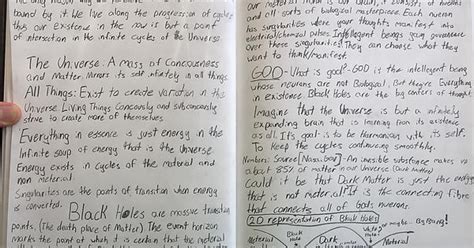 bound by it. We live along the progression of cycles
this our existence in the now is but a point
of intersection in the infinite cycles of the Universe.
The Universe: A mass of Conceousness
and Matter Mirrors its self infinitely in all things.
All Things: Exist to create variation in this
Universe Living Things Conceously and subconceously
strive to create more of themselves.
Everything in essence is just energy in the
Infinite soup of energy that is the Universe.
Energy exists in cycles of the material and
non meterial.
Singularities are the points of transition when energy
is converted.
Black Holes are massive transition
points. (The death place of Matter) The event horizon
marks the point of which it is certain that the material
and all sorts of biological material. Each
has singularities were your thoughts manifest into
electrical/chemical pulses. Intelligent beings gain governance
over these singularities! They can choose what they
want to think/manifest.
GOD - What is god? - GOD is the intelegent being
whose neurons are not Biological, But they're Everything
in existence. Black Holes are the big centers of thought.
Imagine that the Universe is but a infinitely
expanding brain that is learning from its existence
as all. It's goal is to be Harmonious with its self.
To keep the cycles continuing smoothly.
Numbers: Source [Nasa.Gov] An invisible substance makes up
about 85% of matter in our Universe (Dark Matter)
Could it be that Dark Matter is just the energy
that is not material? It is the connecting fibre
that connects all of Gods neurons.
(2D representation of Black Holes)
Material
Black Hole
Dark
might be. Big Bang!
Material